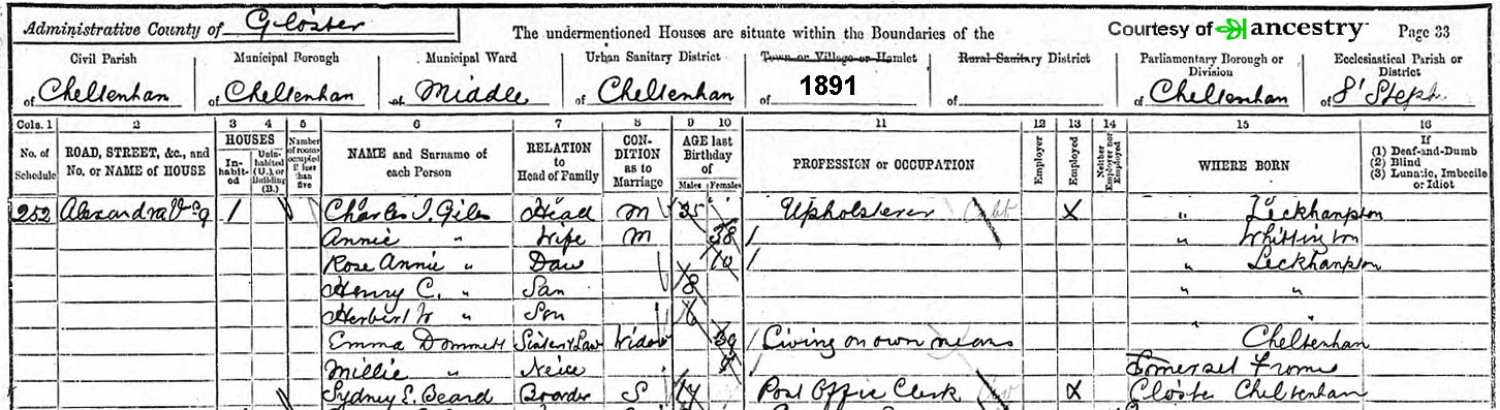 Administrative County of Gloster
The undermentioned Houses are situate within the Boundaries of the
Courtesy of ancestry
Page 33
Civil Parish
of Cheltenham
Municipal Borough
of Cheltenham
Municipal Ward
of Middle
Urban Sanitary District
of Cheltenham
Town or Village or Hamlet
of 1891
Rural Sanitary District
of
Parliamentary Borough or Division
of Cheltenham
Ecclesiastical Parish or District
of St Steph.
Cols. 1 2 3 4 5 6 7 8 9 10 11 12 13 14 15 16
No. of Schedule
ROAD, STREET, &c., and No. or NAME of HOUSE
HOUSES
In-habit-ed
Unin-habited (U.) or Building (B.)
Number of rooms occupied if less than five
NAME and Surname of each Person
RELATION to Head of Family
CON-DITION as to Marriage
AGE last Birthday of
Males Females
PROFESSION or OCCUPATION
Employer
Employed
Neither Employer nor Employed
WHERE BORN
If
(1) Deaf-and-Dumb
(2) Blind
(3) Lunatic, Imbecile or Idiot
252 Alexandra 1 Charles J. Giles Head M 35 Upholsterer X " Leckhampton
Annie " Wife M 38 " Whittington
Rose Annie " Daur 10 " Leckhampton
Henry C. " Son 8 " "
Herbert W " Son 6 "
Emma Dommett Sister Law Widow 39 Living on own means Cheltenham
Millie " Neice 9 Somerset Frome
Sydney E. Beard Boarder S 17 Post Office Clerk X Gloster Cheltenham